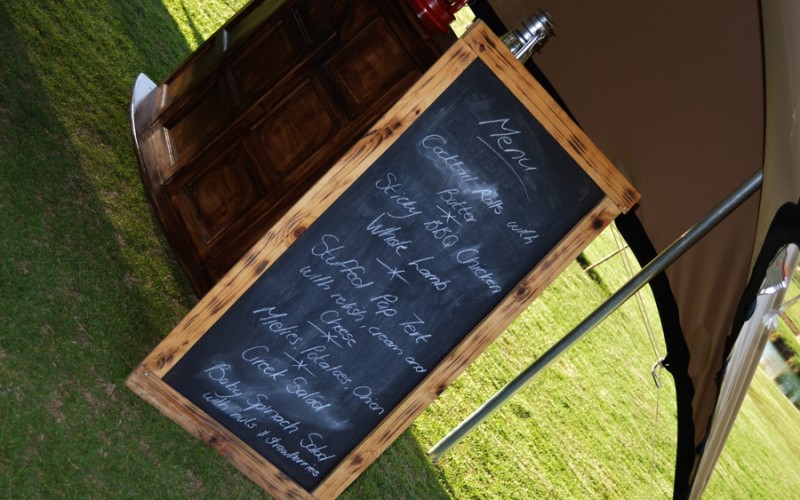 Menu
Cocktail Rolls with
Butter
Sticky BBQ Chicken
Whole Lamb
Stuffed Pap Tert
with relish, cream and
Cheese
Mielies, Potatoes, Onion
Greek Salad
Baby Spinach Salad
with nuts & strawberries